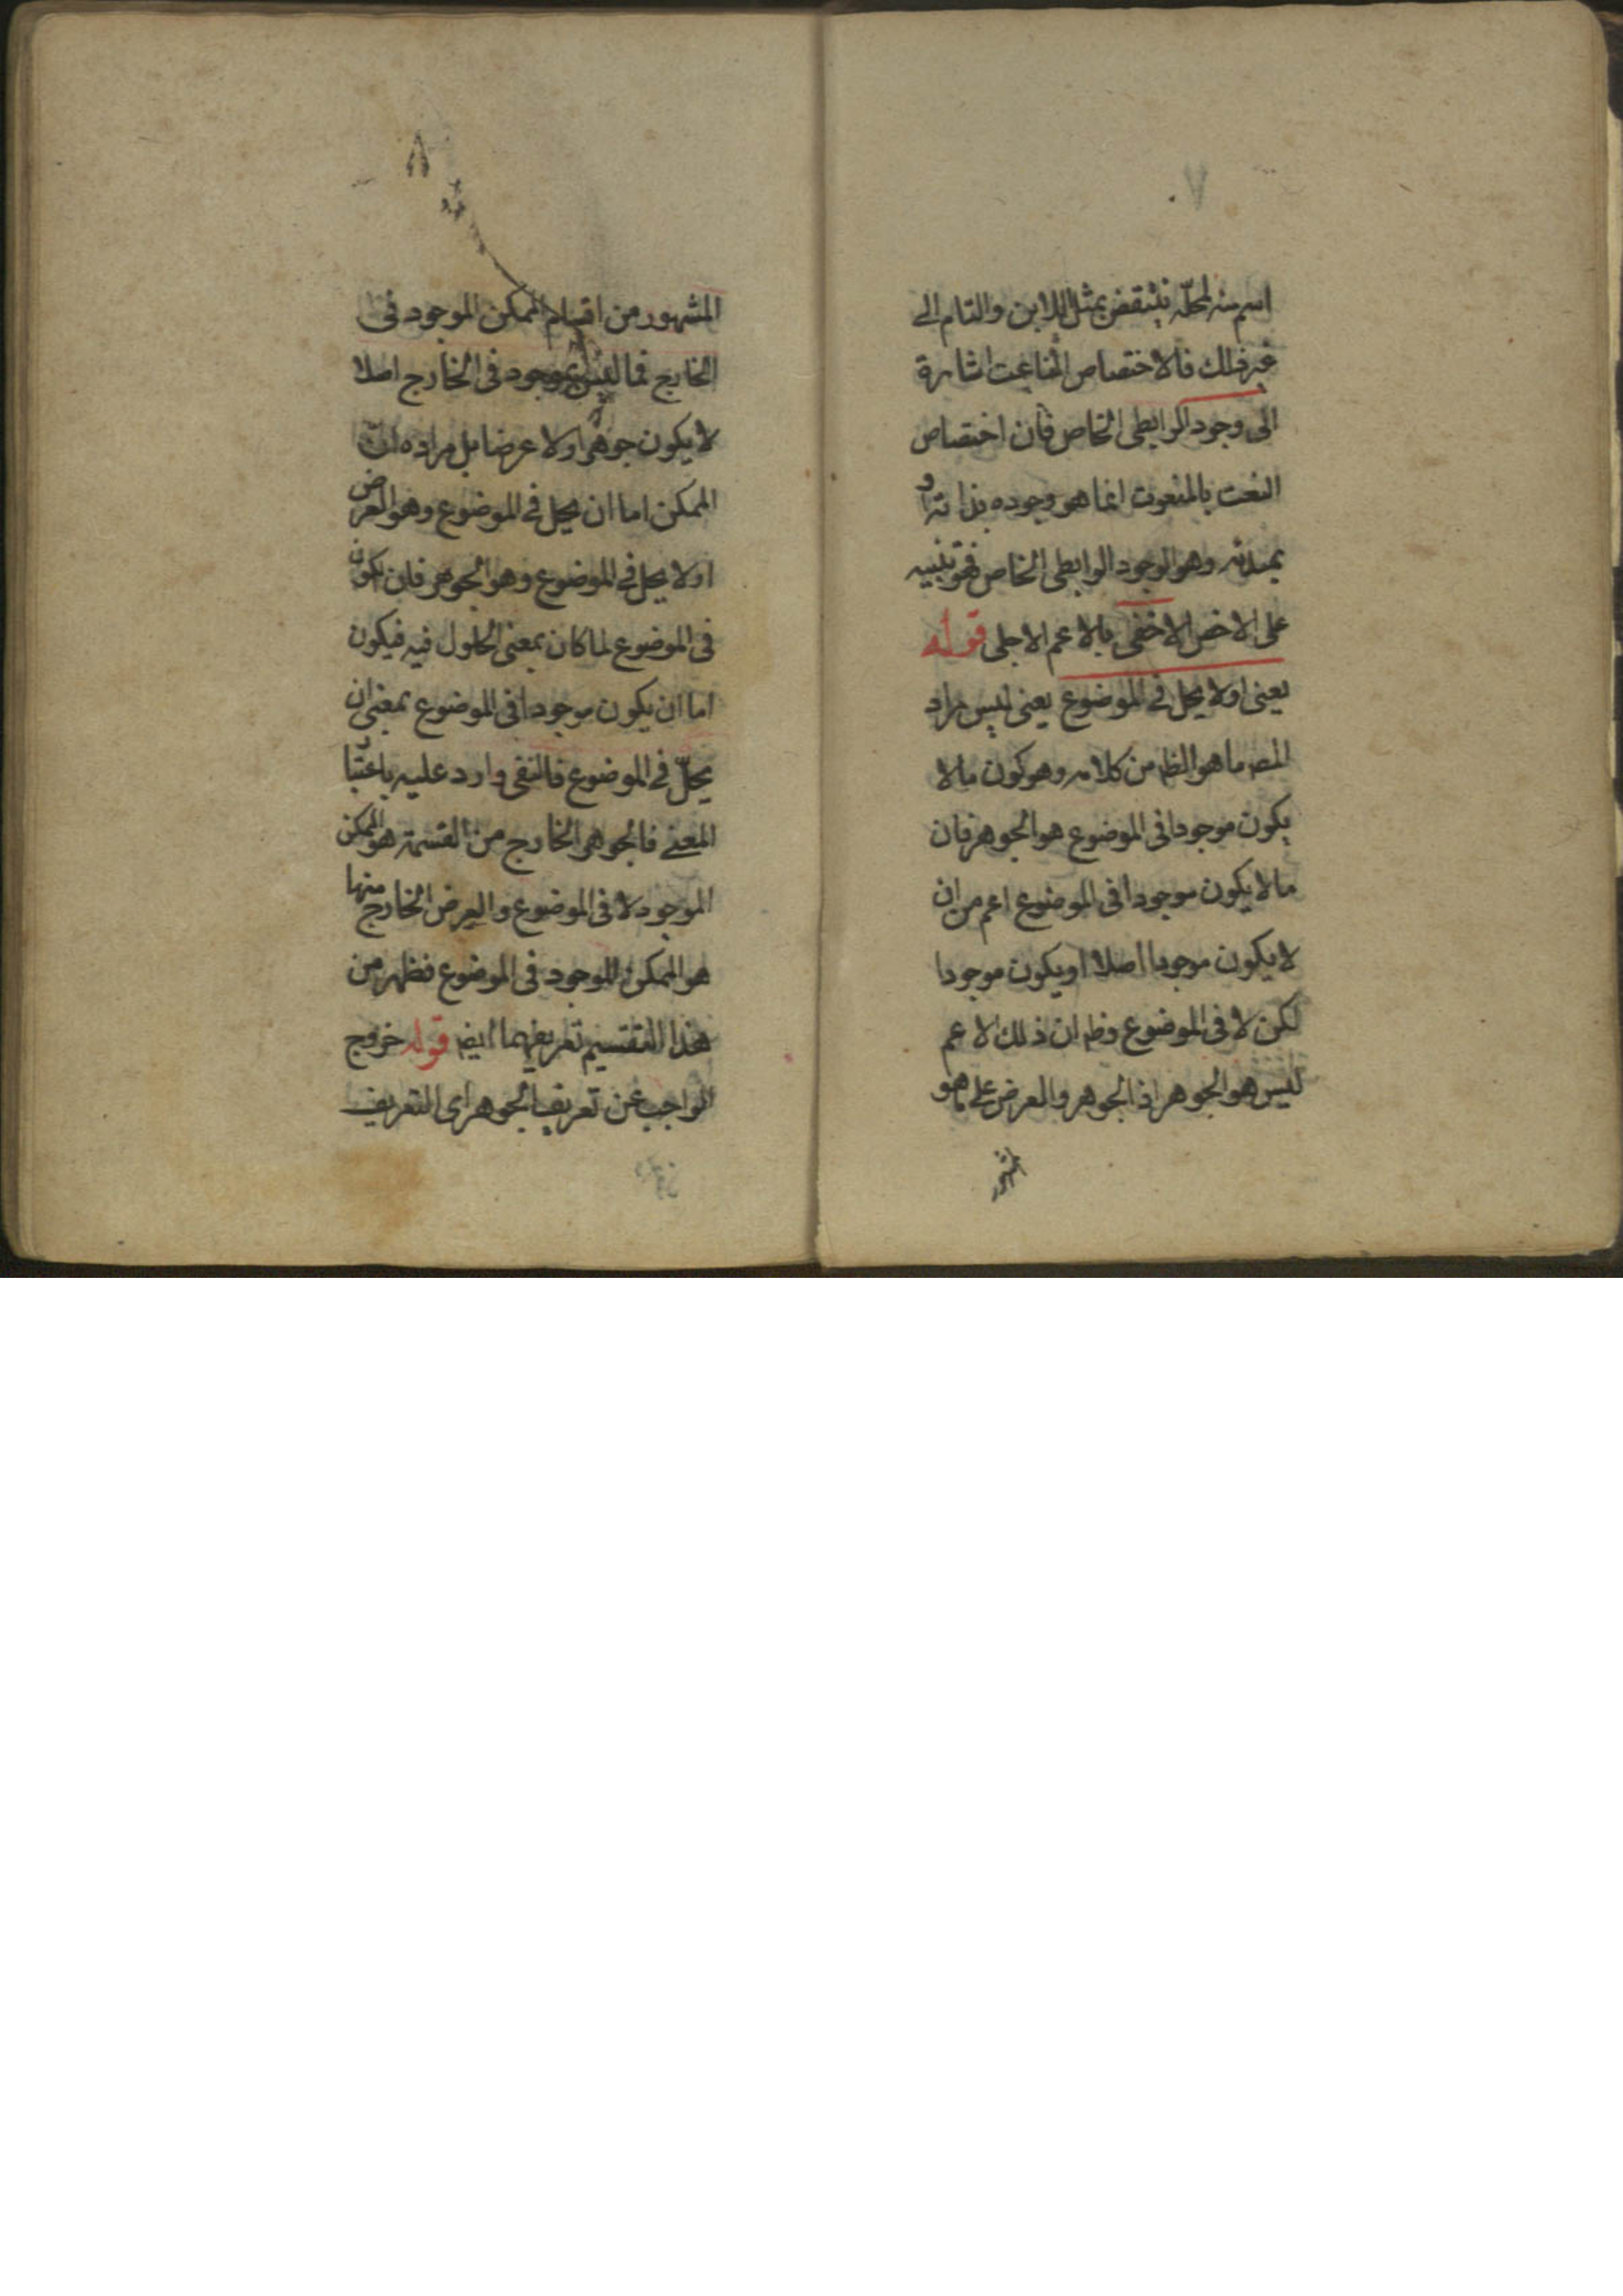 ٧
اسم منه لمحله ينتقض بمثل اللابن والتام الى
غير ذلك فالاختصاص الناعت اشارة
الى وجود الرابطى الخاص فان اختصاص
النعت بالمنعوت انما هو وجوده بذاته او
بمبدئه وهو الوجود الرابطى الخاص فهو تنبيه
على الاخص الاخفى بالاعم الاجلى قوله
يعنى اولا يحل فى الموضوع يعنى ليس مراد
المصـ ما هو الظـ من كلامه وهو كون ما لا
يكون موجودا فى الموضوع هو الجوهر فان
ما لا يكون موجودا فى الموضوع اعم من ان
لا يكون موجودا اصلا او يكون موجودا
لكن لا فى الموضوع وظـ ان ذلك الاعم
ليس هو الجوهر اذ الجوهر والعرض على ما هو
المشهور
٨
المشهور من اقسام الممكن الموجود فى
الخارج فما ليس بموجود فى الخارج اصلا
لا يكون جوهرا ولا عرضا بل مراده ان
الممكن اما ان يحل فى الموضوع وهو العرض
اولا يحل فى الموضوع وهو الجوهر فان يكون
فى الموضوع لما كان بمعنى الحلول فيه فيكون
اما ان يكون موجودا فى الموضوع بمعنى ان
يحلّ فى الموضوع فالنفى وارد عليه باعتبار
المعنى فالجوهر الخارج من القسمة هو الممكن
الموجود لا فى الموضوع والعرض الخارج منها
هو الممكن الموجود فى الموضوع فظهر من
هذا التقسيم تعريفهما ايضـ قوله خروج
الواجب عن تعريف الجوهر اى التعريف